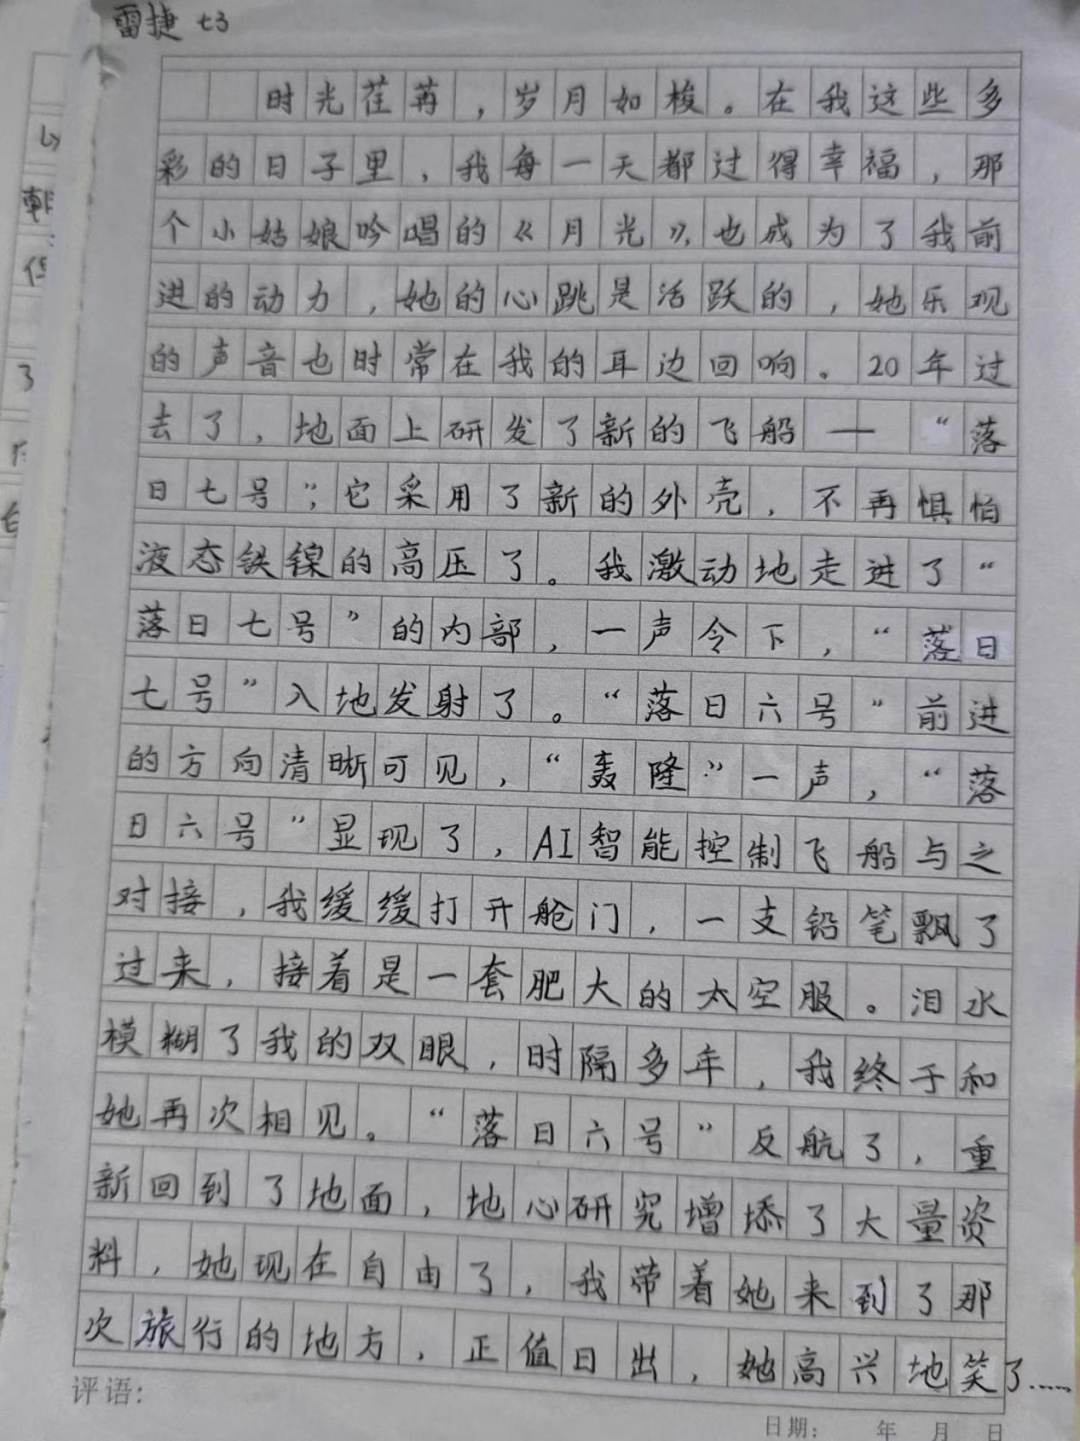 雷捷 七3
时光荏苒，岁月如梭。在我这些多
彩的日子里，我每一天都过得幸福，那
个小姑娘吟唱的《月光》，也成为了我前
进的动力，她的心跳是活跃的，她乐观
的声音也时常在我的耳边回响。20年过
去了，地面上研发了新的飞船——“落
日七号”；它采用了新的外壳，不再惧怕
液态铁镍的高压了。我激动地走进了“
落日七号”的内部，一声令下，“落日
七号”入地发射了。“落日六号”前进
的方向清晰可见，“轰隆”一声，“落
日六号”显现了，AI智能控制飞船与之
对接，我缓缓打开舱门，一支铅笔飘了
过来，接着是一套肥大的太空服。泪水
模糊了我的双眼，时隔多年，我终于和
她再次相见。“落日六号”反航了，重
新回到了地面，地心研究增添了大量资
料，她现在自由了，我带着她来到了那
次旅行的地方，正值日出，她高兴地笑了……
评语：
日期： 年 月 日